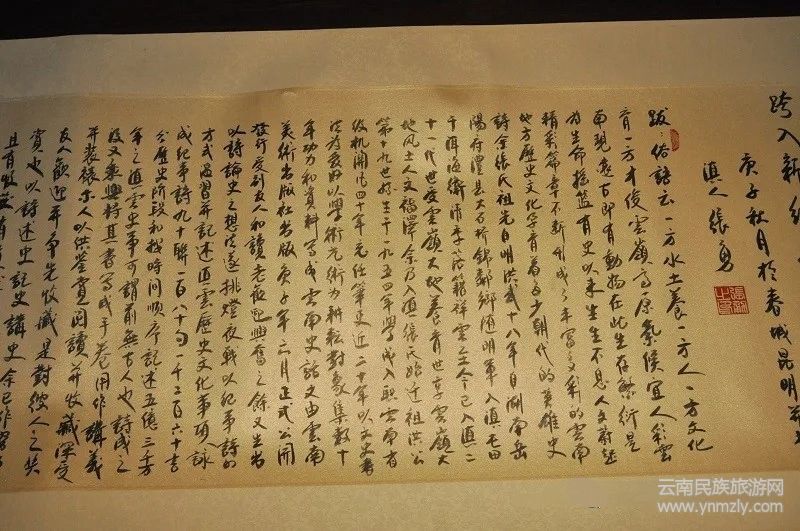 跨入新
庚子秋月於春城昆明
滇人張勇
張勇之印
跋：俗語云一方水土養一方人一方文化
育一方才俊雲嶺高原氣候宜人彩雲
南現遠古即有動物在此生存繁衍是
為生命搖籃有史以來生生不息人文蔚起
精彩篇章不斷形成了丰富多彩的雲南
地方歷史文化孕育着多少朝代的英雄史
詩余張氏祖先自明洪武十八年自湖南岳
陽府澧縣大石橋錦鄉隨明軍入滇屯田
于洱海衛清季落籍祥雲至今已入滇二
十一代世受雲嶺大地養育世享雲嶺大
地風土人文福澤余乃入滇張氏始遷祖洪公
第十九世孫生于一九五四年學成入職雲南省
級机關凡四十年元任筆吏近二十年以文史書
法為爱好以學術元術為耕耘對象集数十
年功力和資料寫成雲南史話文由雲南
美術出版社出版庚子年六月正式公開
發行受到友人和讀者歡迎興奮之餘又出当
以詩論史之想法遂挑燈夜戰以紀事詩的
方式温習并記述滇雲歷史文化事項詠
成紀事詩九十聯一百八十句一千二百六十言
分歷史阶段和按時間順序記述五億三千万
年之滇雲史事可謂前無古人也詩成之
後又乘興将其書寫成手卷用作講義
并装裱示人以供鉴賞閱讀并收藏深受
友人歡迎并争先收藏是對後人之奖
賞也以詩述史記史講史余已作習
且有收
云南民族旅游网
www.ynmzly.com